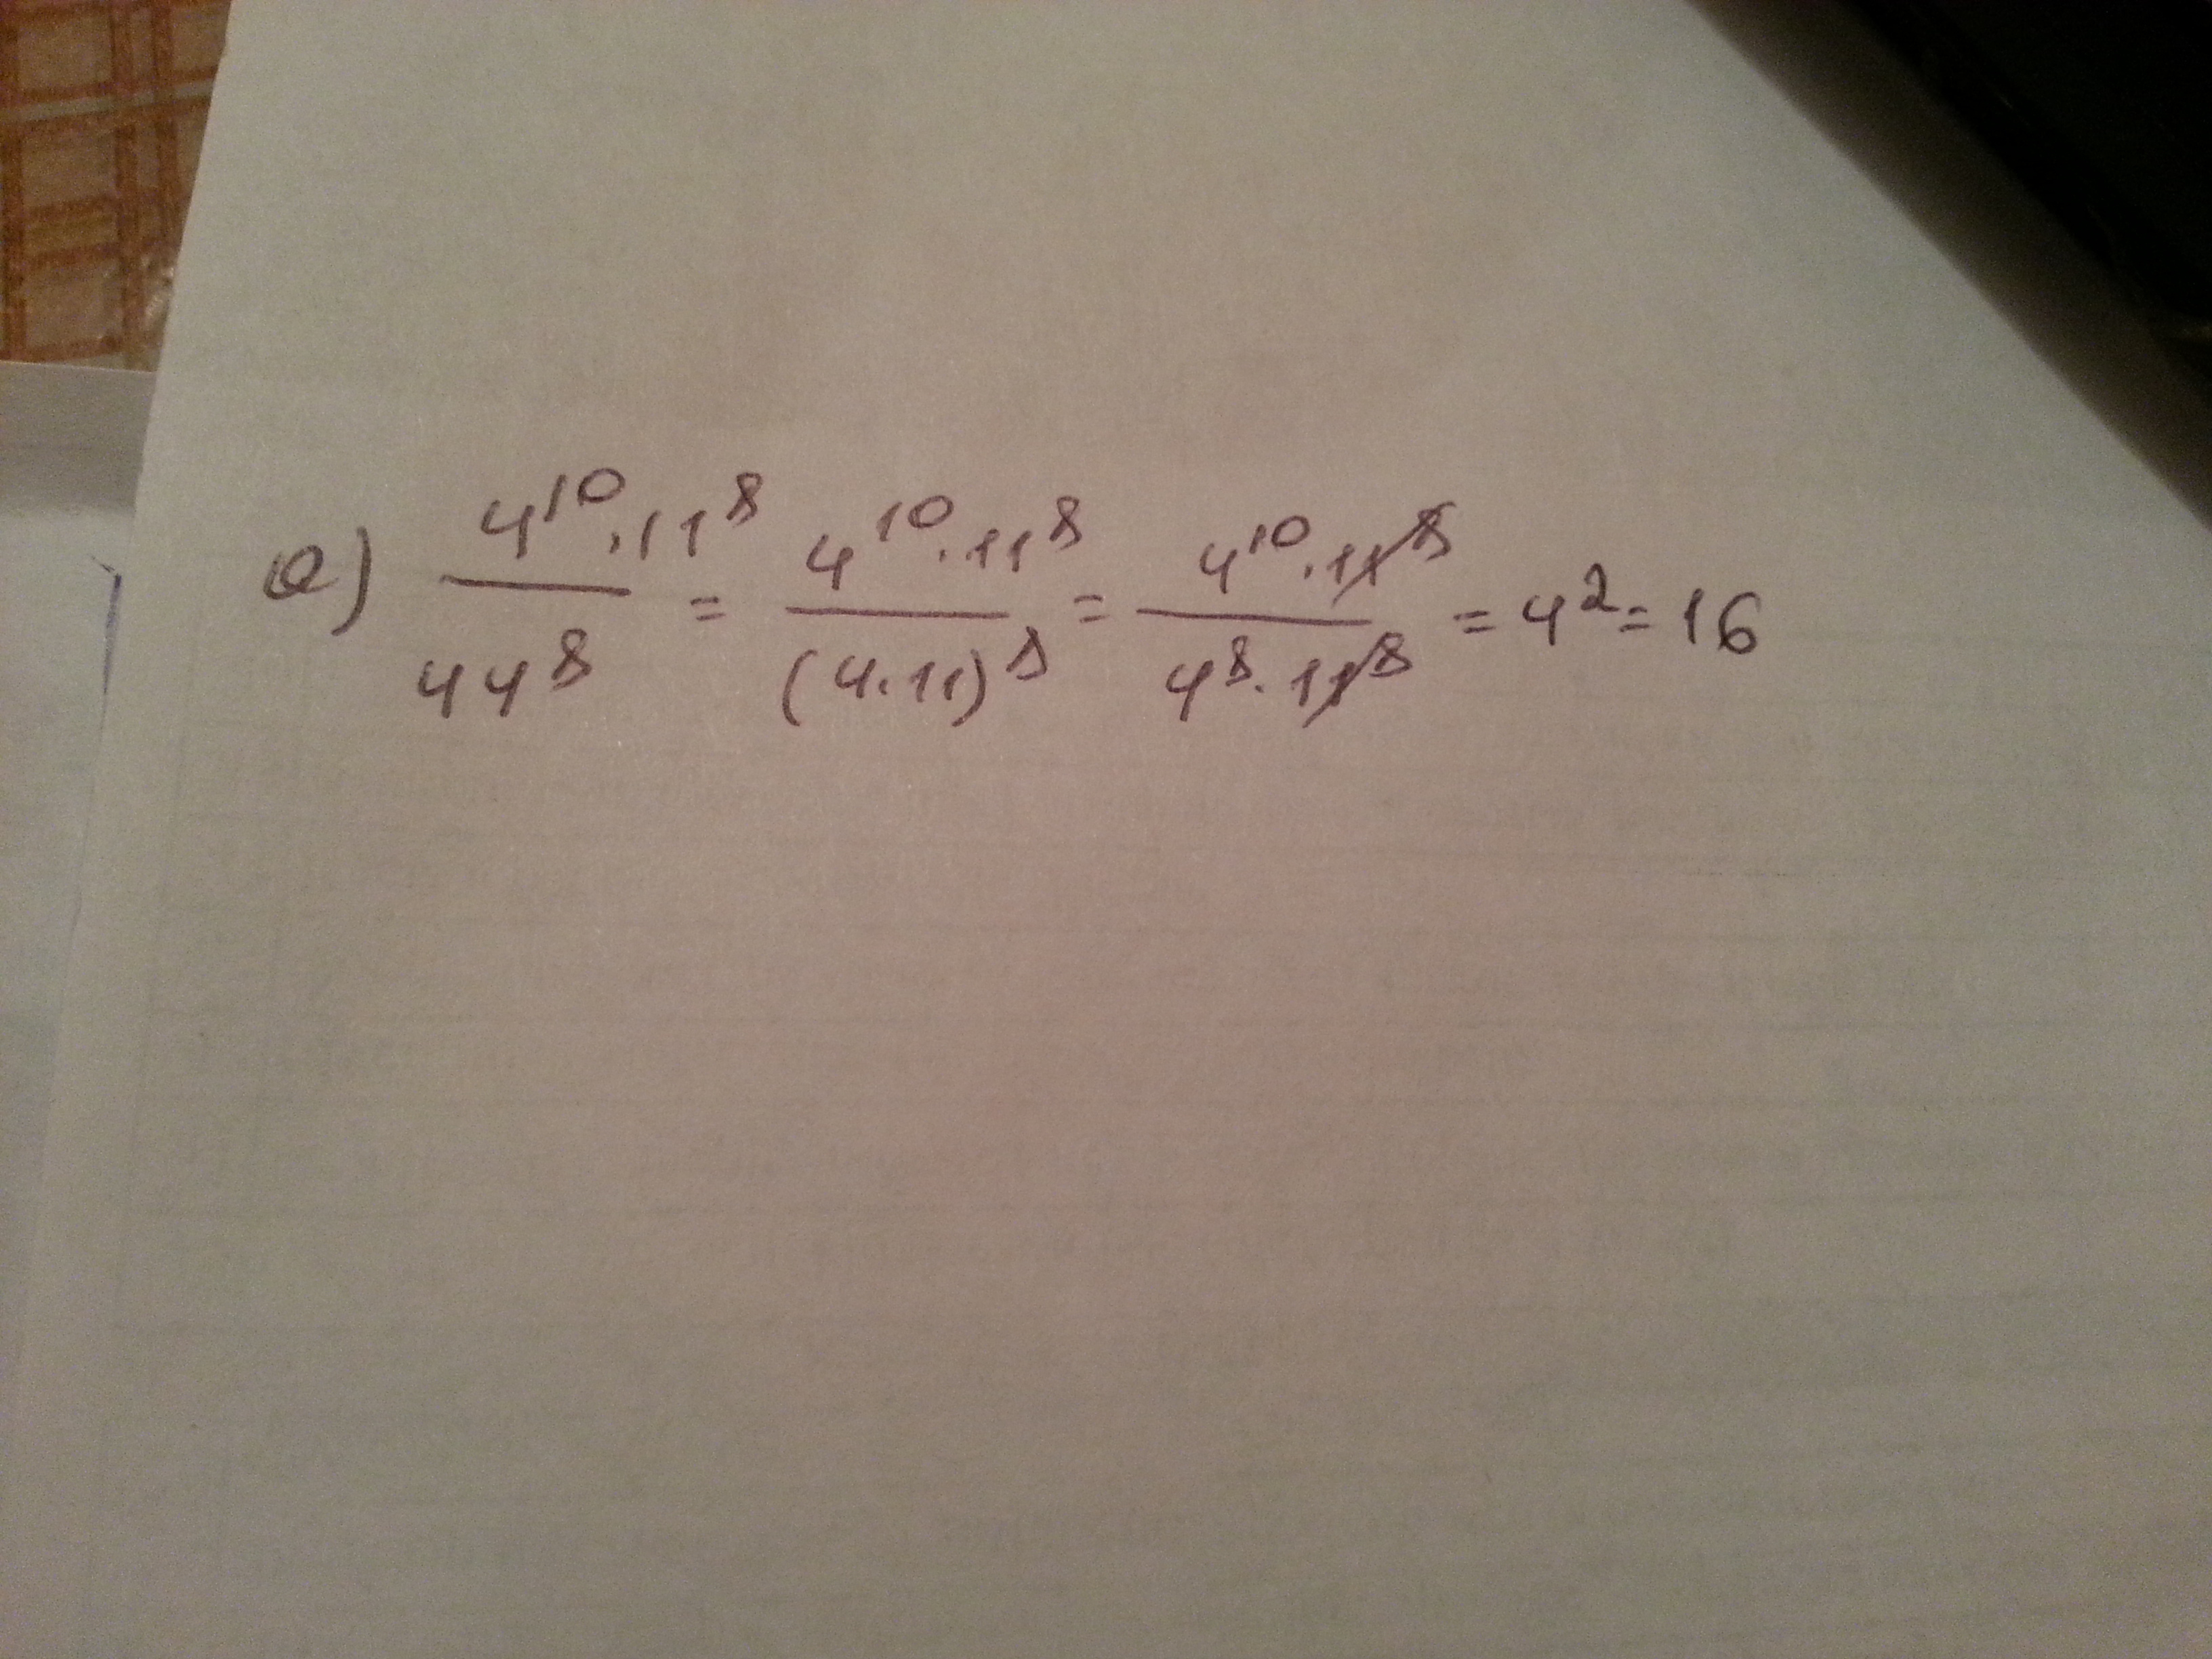 a) 4^10 · 11^8 / 44^8 = 4^10 · 11^8 / (4 · 11)^8 = 4^10 · 11^8 / 4^8 · 11^8 = 4^2 = 16